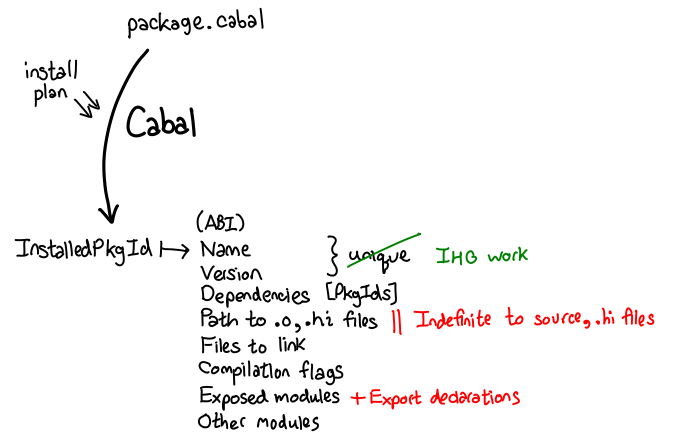 package.cabal
install
plan
Cabal
(ABI)
InstalledPkgId ↦ Name } unique IHG work
Version
Dependencies [PkgIds]
Path to .o, .hi files || Indefinite to source, .hi files
Files to link
Compilation flags
Exposed modules + Export declarations
Other modules